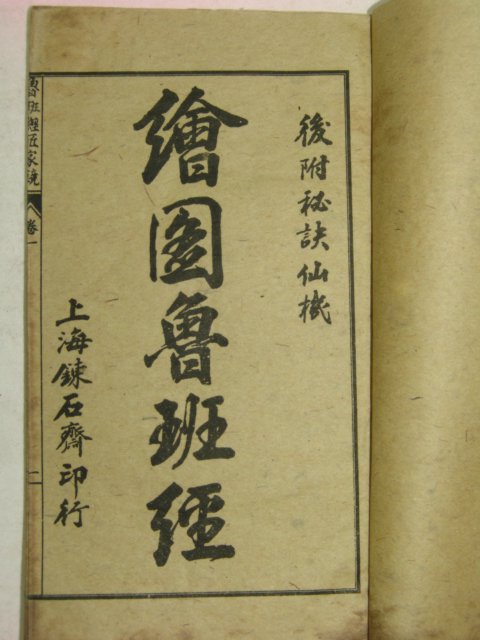 後附秘訣仙機
繪圖魯班經
上海錬石齋印行
魯班經匠家鏡
卷一
二